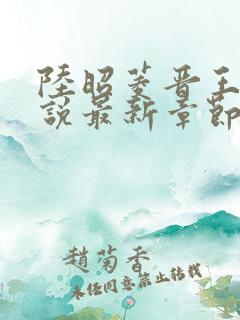 陸昭菱晋王
説最新章節
趙菊香
未经同意禁止转载